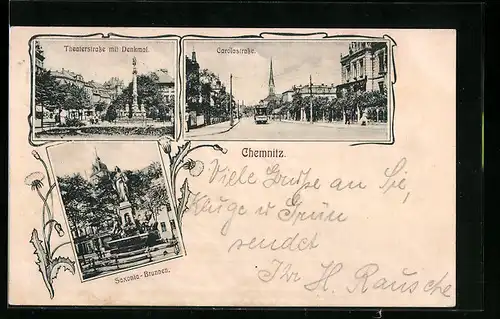 Theaterstraße mit Denkmal.
Carolastraße.
Chemnitz.
Viele Grüße an Sie,
Kluge u Grün
sendet
Ihr H. Rausche
Saxonia-Brunnen.